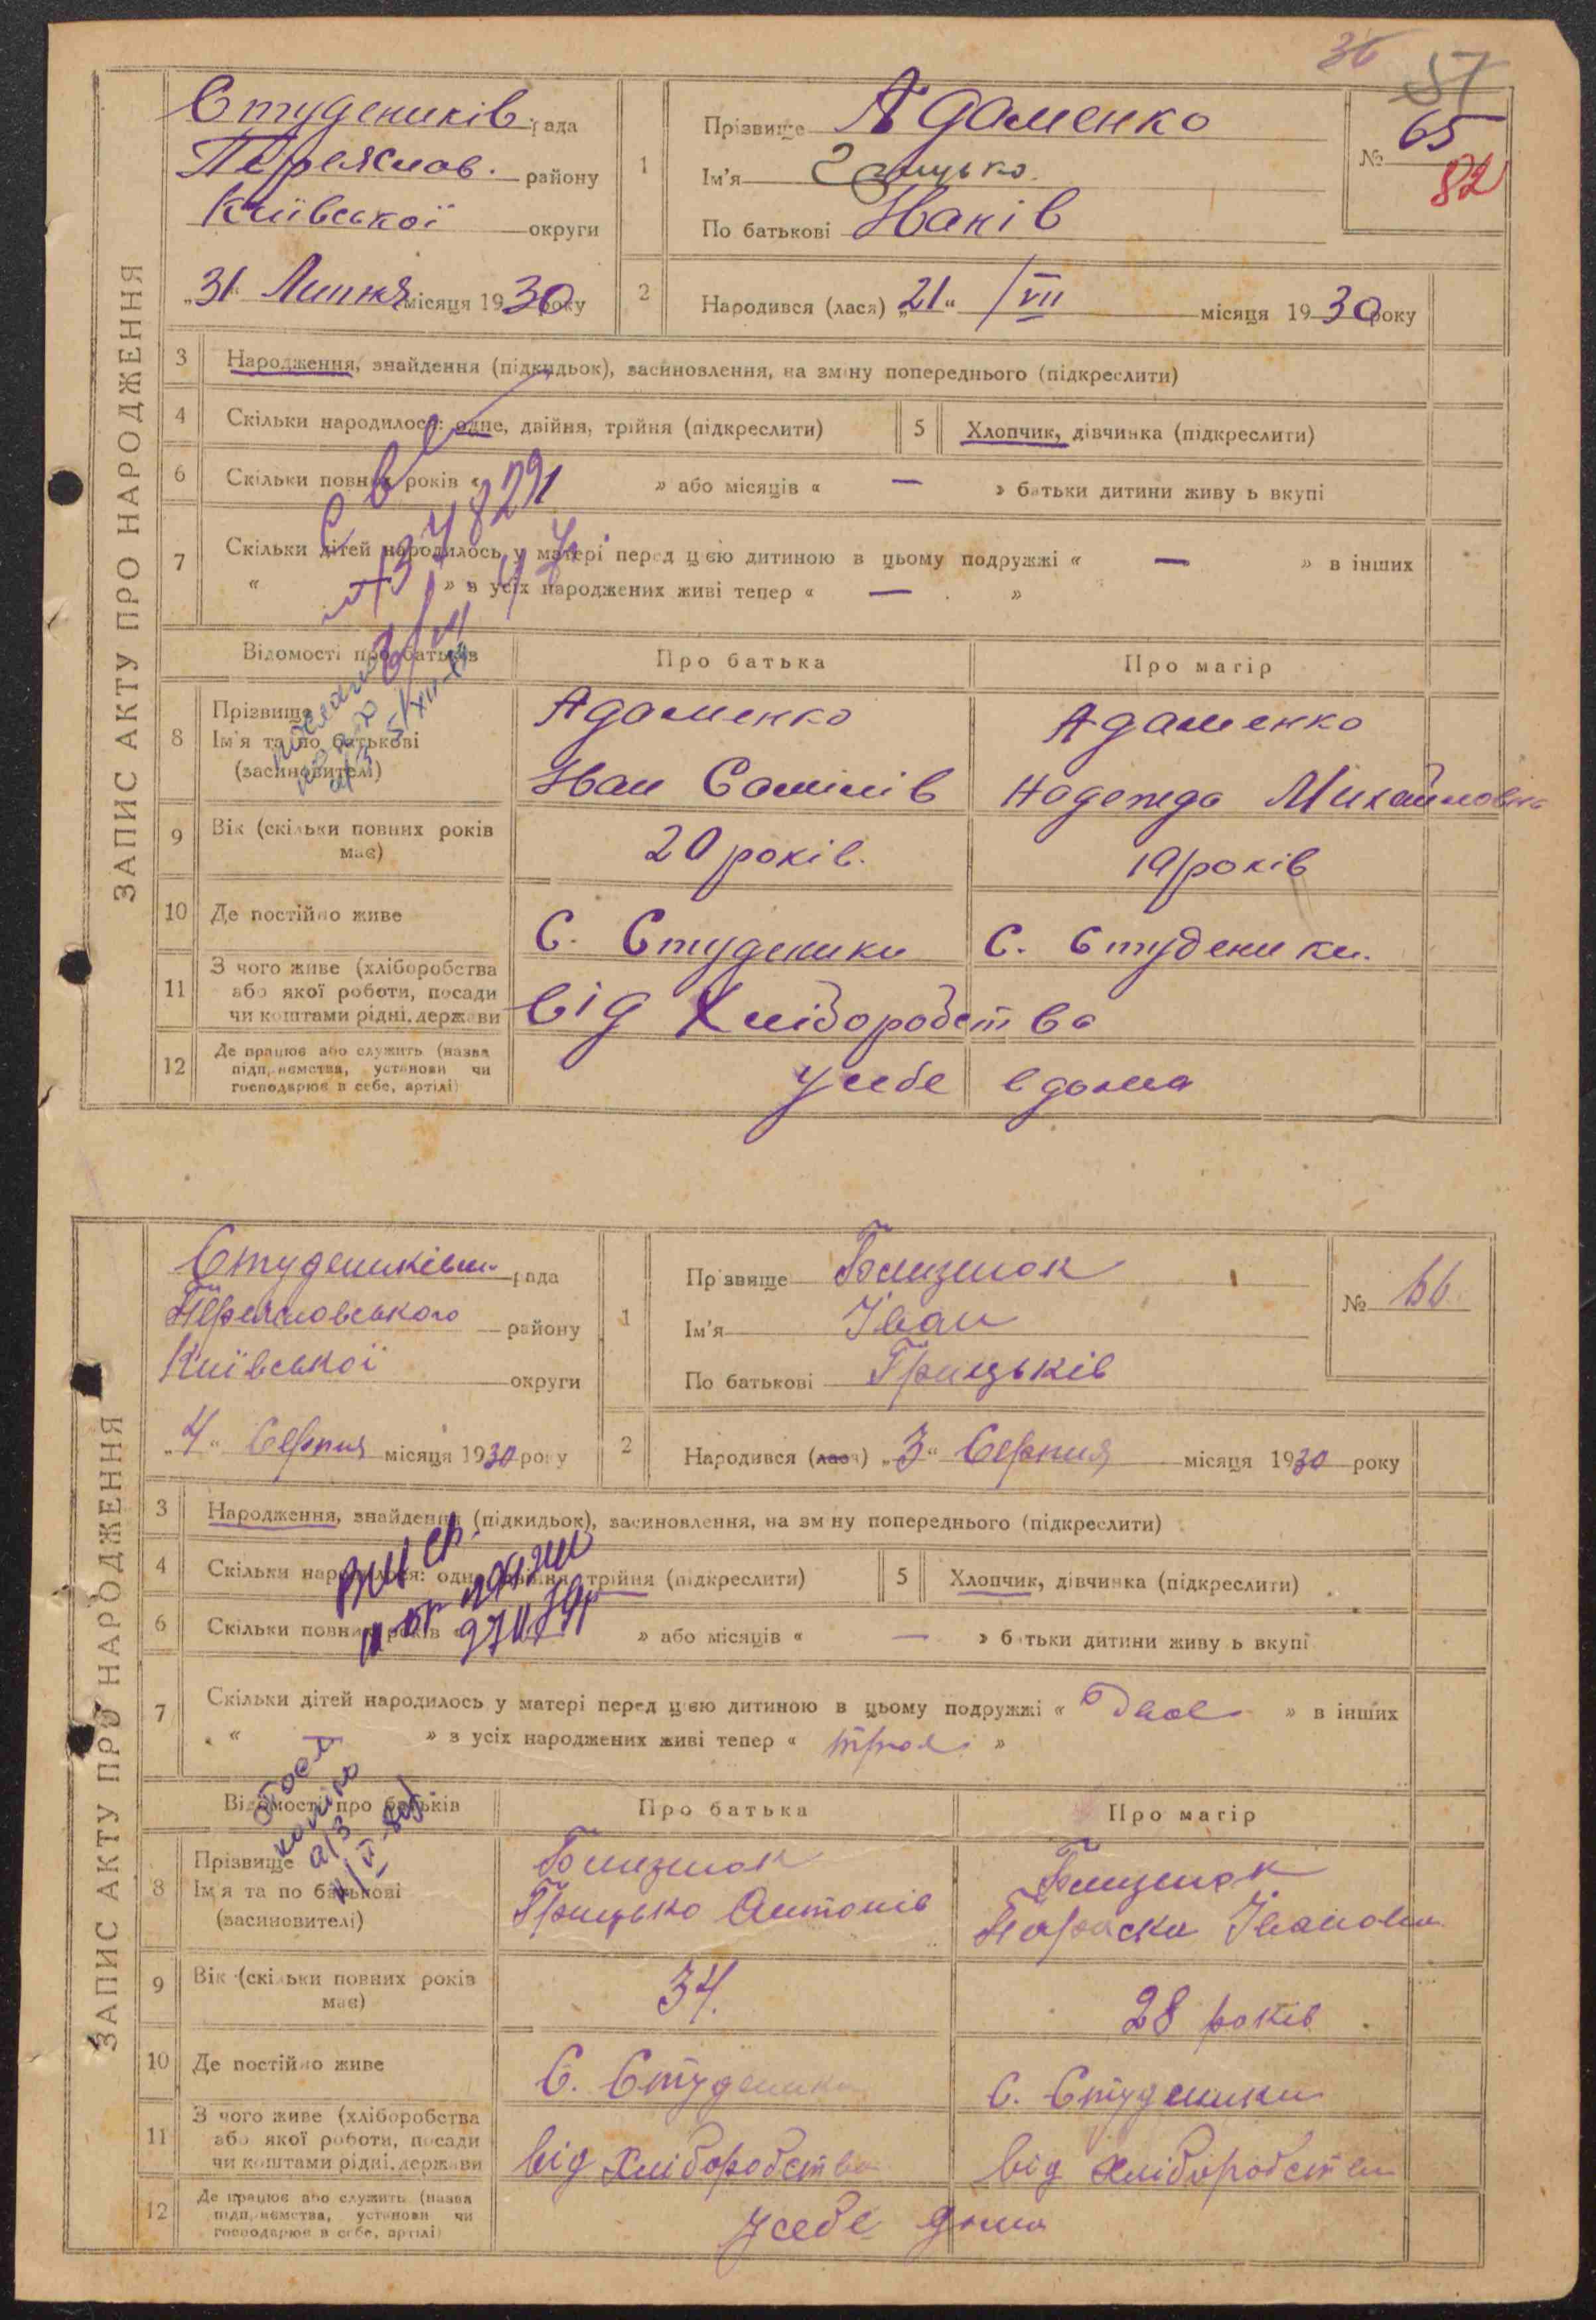 36
57
ЗАПИС АКТУ ПРО НАРОДЖЕННЯ
Студеників. рада
Переяслов. району
Київської округи
„31“ Липня місяця 1930 року
1
Прізвище Адаменко
Ім'я Грицько.
По батькові Иванів
№ 65
82
2
Народився (лася) „21“ /VII місяця 1930 року
3 Народження, знайдення (підкидьок), засиновлення, на зміну попереднього (підкреслити)
4 Скільки народилося: одне, двійня, трійня (підкреслити)
5 Хлопчик, дівчинка (підкреслити)
6 Скільки повних років « » або місяців « — » батьки дитини живуть вкупі
7 Скільки дітей народилось у матері перед цією дитиною в цьому подружжі « — » в інших
« » з усіх народжених живі тепер « — »
Відомості про батьків
Про батька
Про матір
8 Прізвище
Ім'я та по батькові
(засиновителі)
Адаменко
Иван Самілів
Адаменко
Надежда Михайловна
9 Вік (скільки повних років має)
20 років.
19 років
10 Де постійно живе
С. Студеники
С. Студеники.
11 З чого живе (хліборобства
або якої роботи, посади
чи коштами рідні, держави
від Хліборобства
12 Де працює або служить (назва
підприємства, установи чи
господарює в себе, артілі)
у себе вдома
ЗАПИС АКТУ ПРО НАРОДЖЕННЯ
рада
Переясловського району
Київської округи
„4“ Серпня місяця 1930 року
1
Прізвище Близнюк
Ім'я Іван
По батькові Грицьків
№ 66
2
Народився (лася) „3“ Серпня місяця 1930 року
3 Народження, знайдення (підкидьок), засиновлення, на зміну попереднього (підкреслити)
4 Скільки народилося: одне, двійня, трійня (підкреслити)
5 Хлопчик, дівчинка (підкреслити)
6 Скільки повних років « » або місяців « — » батьки дитини живуть вкупі
7 Скільки дітей народилось у матері перед цією дитиною в цьому подружжі « двоє » в інших
« » з усіх народжених живі тепер « троє »
Відомості про батьків
Про батька
Про матір
8 Прізвище
Ім'я та по батькові
(засиновителі)
Близнюк
Грицько Антонів
Близнюк
Параска Івановна
9 Вік (скільки повних років має)
34.
28 років
10 Де постійно живе
С. Студеники
С. Студеники
11 З чого живе (хліборобства
або якої роботи, посади
чи коштами рідні, держави
від хліборобства
від хліборобства
12 Де працює або служить (назва
підприємства, установи чи
господарює в себе, артілі)
у себе дома